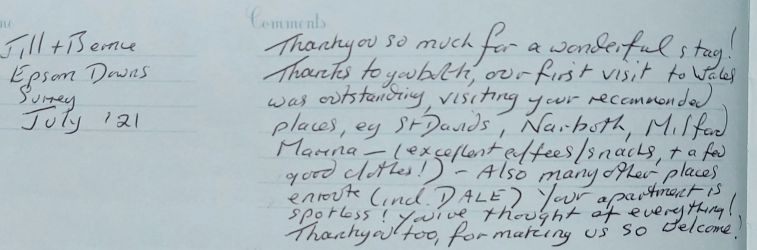 Comments
Jill + Bernie
Epsom Downs
Surrey
July '21
Thankyou so much for a wonderful stay!
Thanks to you both, our first visit to Wales
was outstanding, visiting your recommended
places, eg St Davids, Narboth, Milford
Marina – (excellent coffees/snacks, + a few
good clothes!) – Also many other places
enroute (incl. DALE) Your apartment is
spotless! You've thought of everything!
Thankyou too, for making us so welcome!